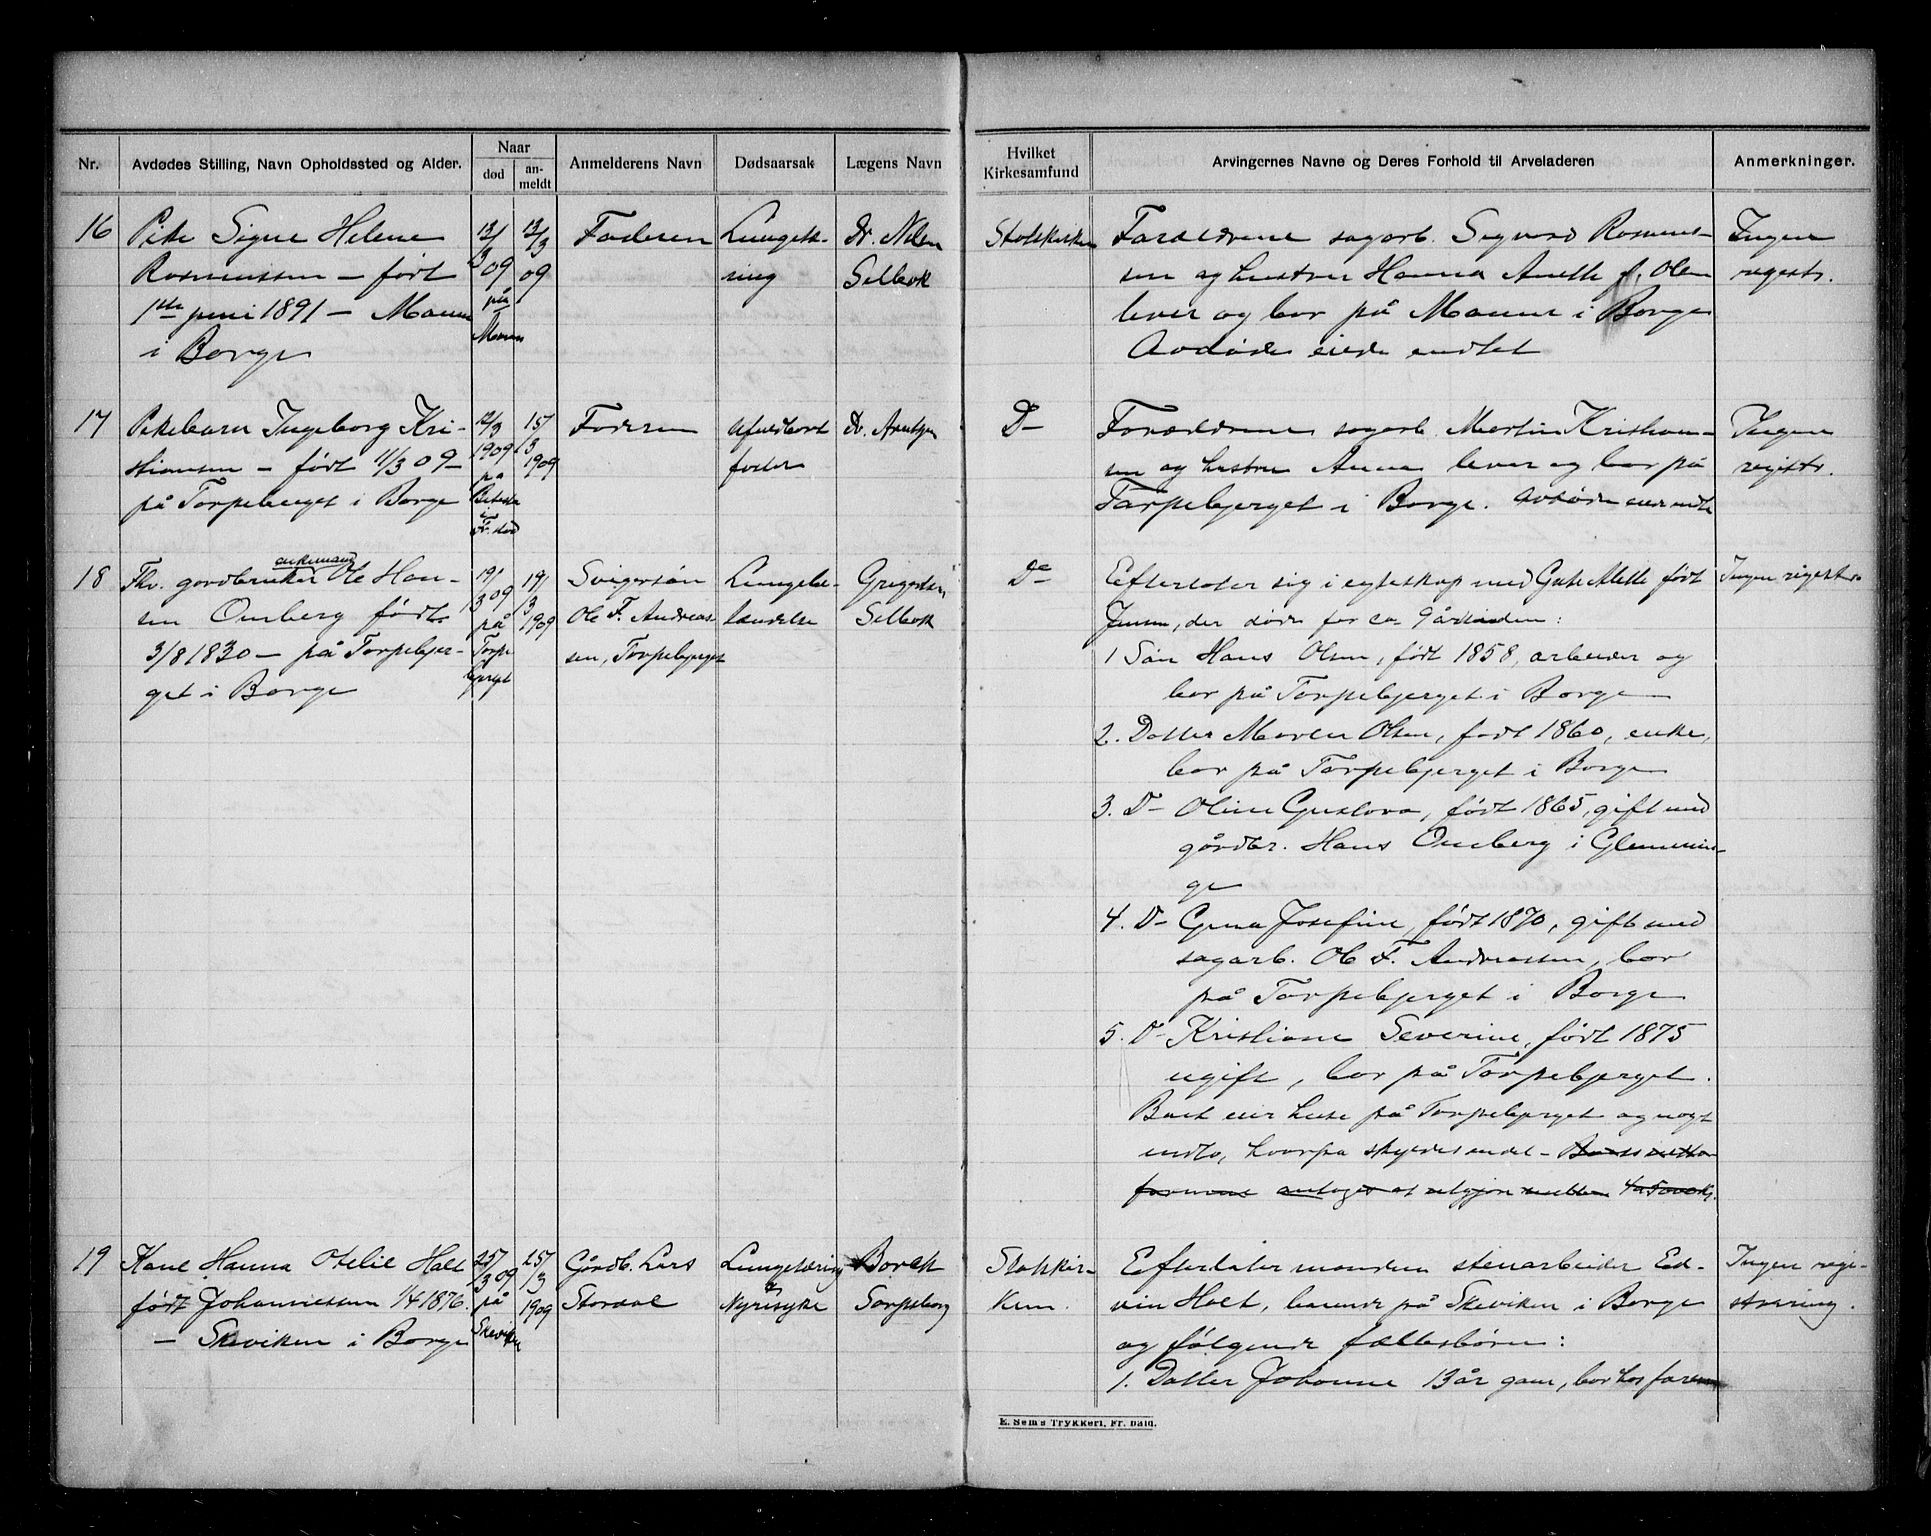 Nr. Avdødes Stilling, Navn Opholdssted og Alder. Naar død anmeldt Anmelderens Navn Dødsaarsak Lægens Navn Hvilket Kirkesamfund Arvingernes Navne og Deres Forhold til Arveladeren Anmerkninger.
16 Pike Signe Helene
Rasmussen – født
1ste juni 1891 –
i Borge
12/3 09
på
12/3 09
Faderen
Dr. Nilsen
Selbak
Statskirken
Forældrene sagarb. Sigvard Rasmus-
sen og hustru Hanna Anette f. Olsen
lever og bor på i Borge
Avdøde eiede endtet
Ingen
registr.
17 Pikebarn Ingeborg Kri-
stiansen – født 11/3 09 –
på Torpeberget i Borge
12/3
1909
på
i
Fr.stad
15/3
1909
Faderen
Ufuldbåret
foster
Dr. Arntzen
Do
Forældrene sagarb. Martin Kristian-
sen og hustru Anna lever og bor på
Torpebjerget i Borge. Avdøde eier intet
Ingen
registr.
18 Fhv. gårdbruker enkemand Ole Han-
sen Omberg født
3/8 1830 – på Torpebjer-
get i Borge
19/3 09
på
Torpe
bjerget
19/3
1909
Svigersøn
Ole F. Andreas-
sen, Torpebjerget
Lungebe-
tændelse
Selbak
Do
Efterlater sig i egteskap med født
Jensen, der døde for ca 9 år siden:
1 Søn Hans Olsen, født 1858, arbeider og
bor på Torpebjerget i Borge
2. Datter Maren Olsen, født 1860, enke,
bor på Torpebjerget i Borge
3. D– Oline Gustava, født 1865, gift med
gårdbr. Hans Omberg i Glemmin-
ge
4. D– Gina Josefine, født 1870, gift med
sagarb. Ole F. Andreassen, bor
på Torpebjerget i Borge
5. D– Kristiane Severine, født 1875
ugift, bor på Torpebjerget.
Boet eier huse på Torpebjerget og nogt
indbo, hvorpå skyldes endel –
Ingen registr.
19 Kone Hanna Otelie Holt
født Johannessen 1/4 1876
– Skeviken i Borge
25/3 09
på
Skeviken
25/3
1909
Gårdb. Lars
Stordal
Lungetæring
Nyresyke
Sarpsborg
Statskir-
ken.
Efterlater manden stenarbeider Ed-
vin Holt, boende på Skeviken i Borge
og følgende fællesbørn:
1. Datter Johanne 13 år gam, bor hos faren
Ingen regi-
strering.
E. Sem's Trykkeri, Fr. hald.